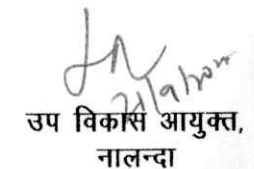 उप विकास आयुक्त,
नालन्दा